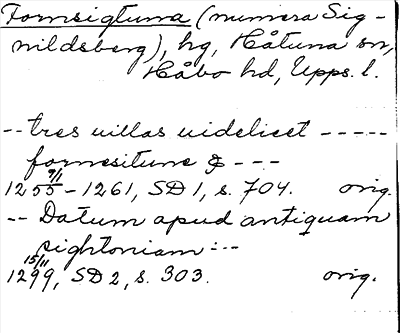 Fornsigtuna (numera Sig-
nildsberg), hg, Håtuna sn,
Håbo hd, Upps. l.
-- tres uillas uidelicet -----
fornesitune & ---
9/11
1255-1261, SD 1, s. 704. orig.
-- Datum apud antiquam
sightoniam :--
15/11
1299, SD 2, s. 303. orig.